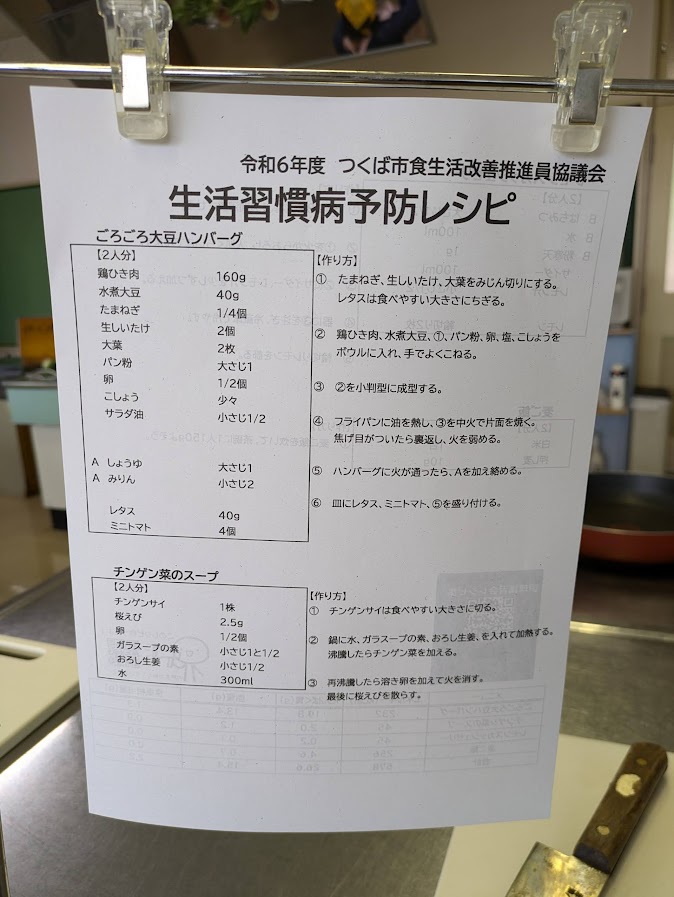 令和6年度　つくば市食生活改善推進員協議会
生活習慣病予防レシピ
ごろごろ大豆ハンバーグ
【2人分】
鶏ひき肉　160g
水煮大豆　40g
たまねぎ　1/4個
生しいたけ　2個
大葉　2枚
パン粉　大さじ1
卵　1/2個
こしょう　少々
サラダ油　小さじ1/2
A　しょうゆ　大さじ1
A　みりん　小さじ2
レタス　40g
ミニトマト　4個
【作り方】
①　たまねぎ、生しいたけ、大葉をみじん切りにする。
レタスは食べやすい大きさにちぎる。
②　鶏ひき肉、水煮大豆、①、パン粉、卵、塩、こしょうを
ボウルに入れ、手でよくこねる。
③　②を小判型に成型する。
④　フライパンに油を熱し、③を中火で片面を焼く。
焦げ目がついたら裏返し、火を弱める。
⑤　ハンバーグに火が通ったら、Aを加え絡める。
⑥　皿にレタス、ミニトマト、⑤を盛り付ける。
チンゲン菜のスープ
【2人分】
チンゲンサイ　1株
桜えび　2.5g
卵　1/2個
ガラスープの素　小さじ1と1/2
おろし生姜　小さじ1/2
水　300ml
【作り方】
①　チンゲンサイは食べやすい大きさに切る。
②　鍋に水、ガラスープの素、おろし生姜、を入れて加熱する。
沸騰したらチンゲン菜を加える。
③　再沸騰したら溶き卵を加えて火を消す。
最後に桜えびを散らす。